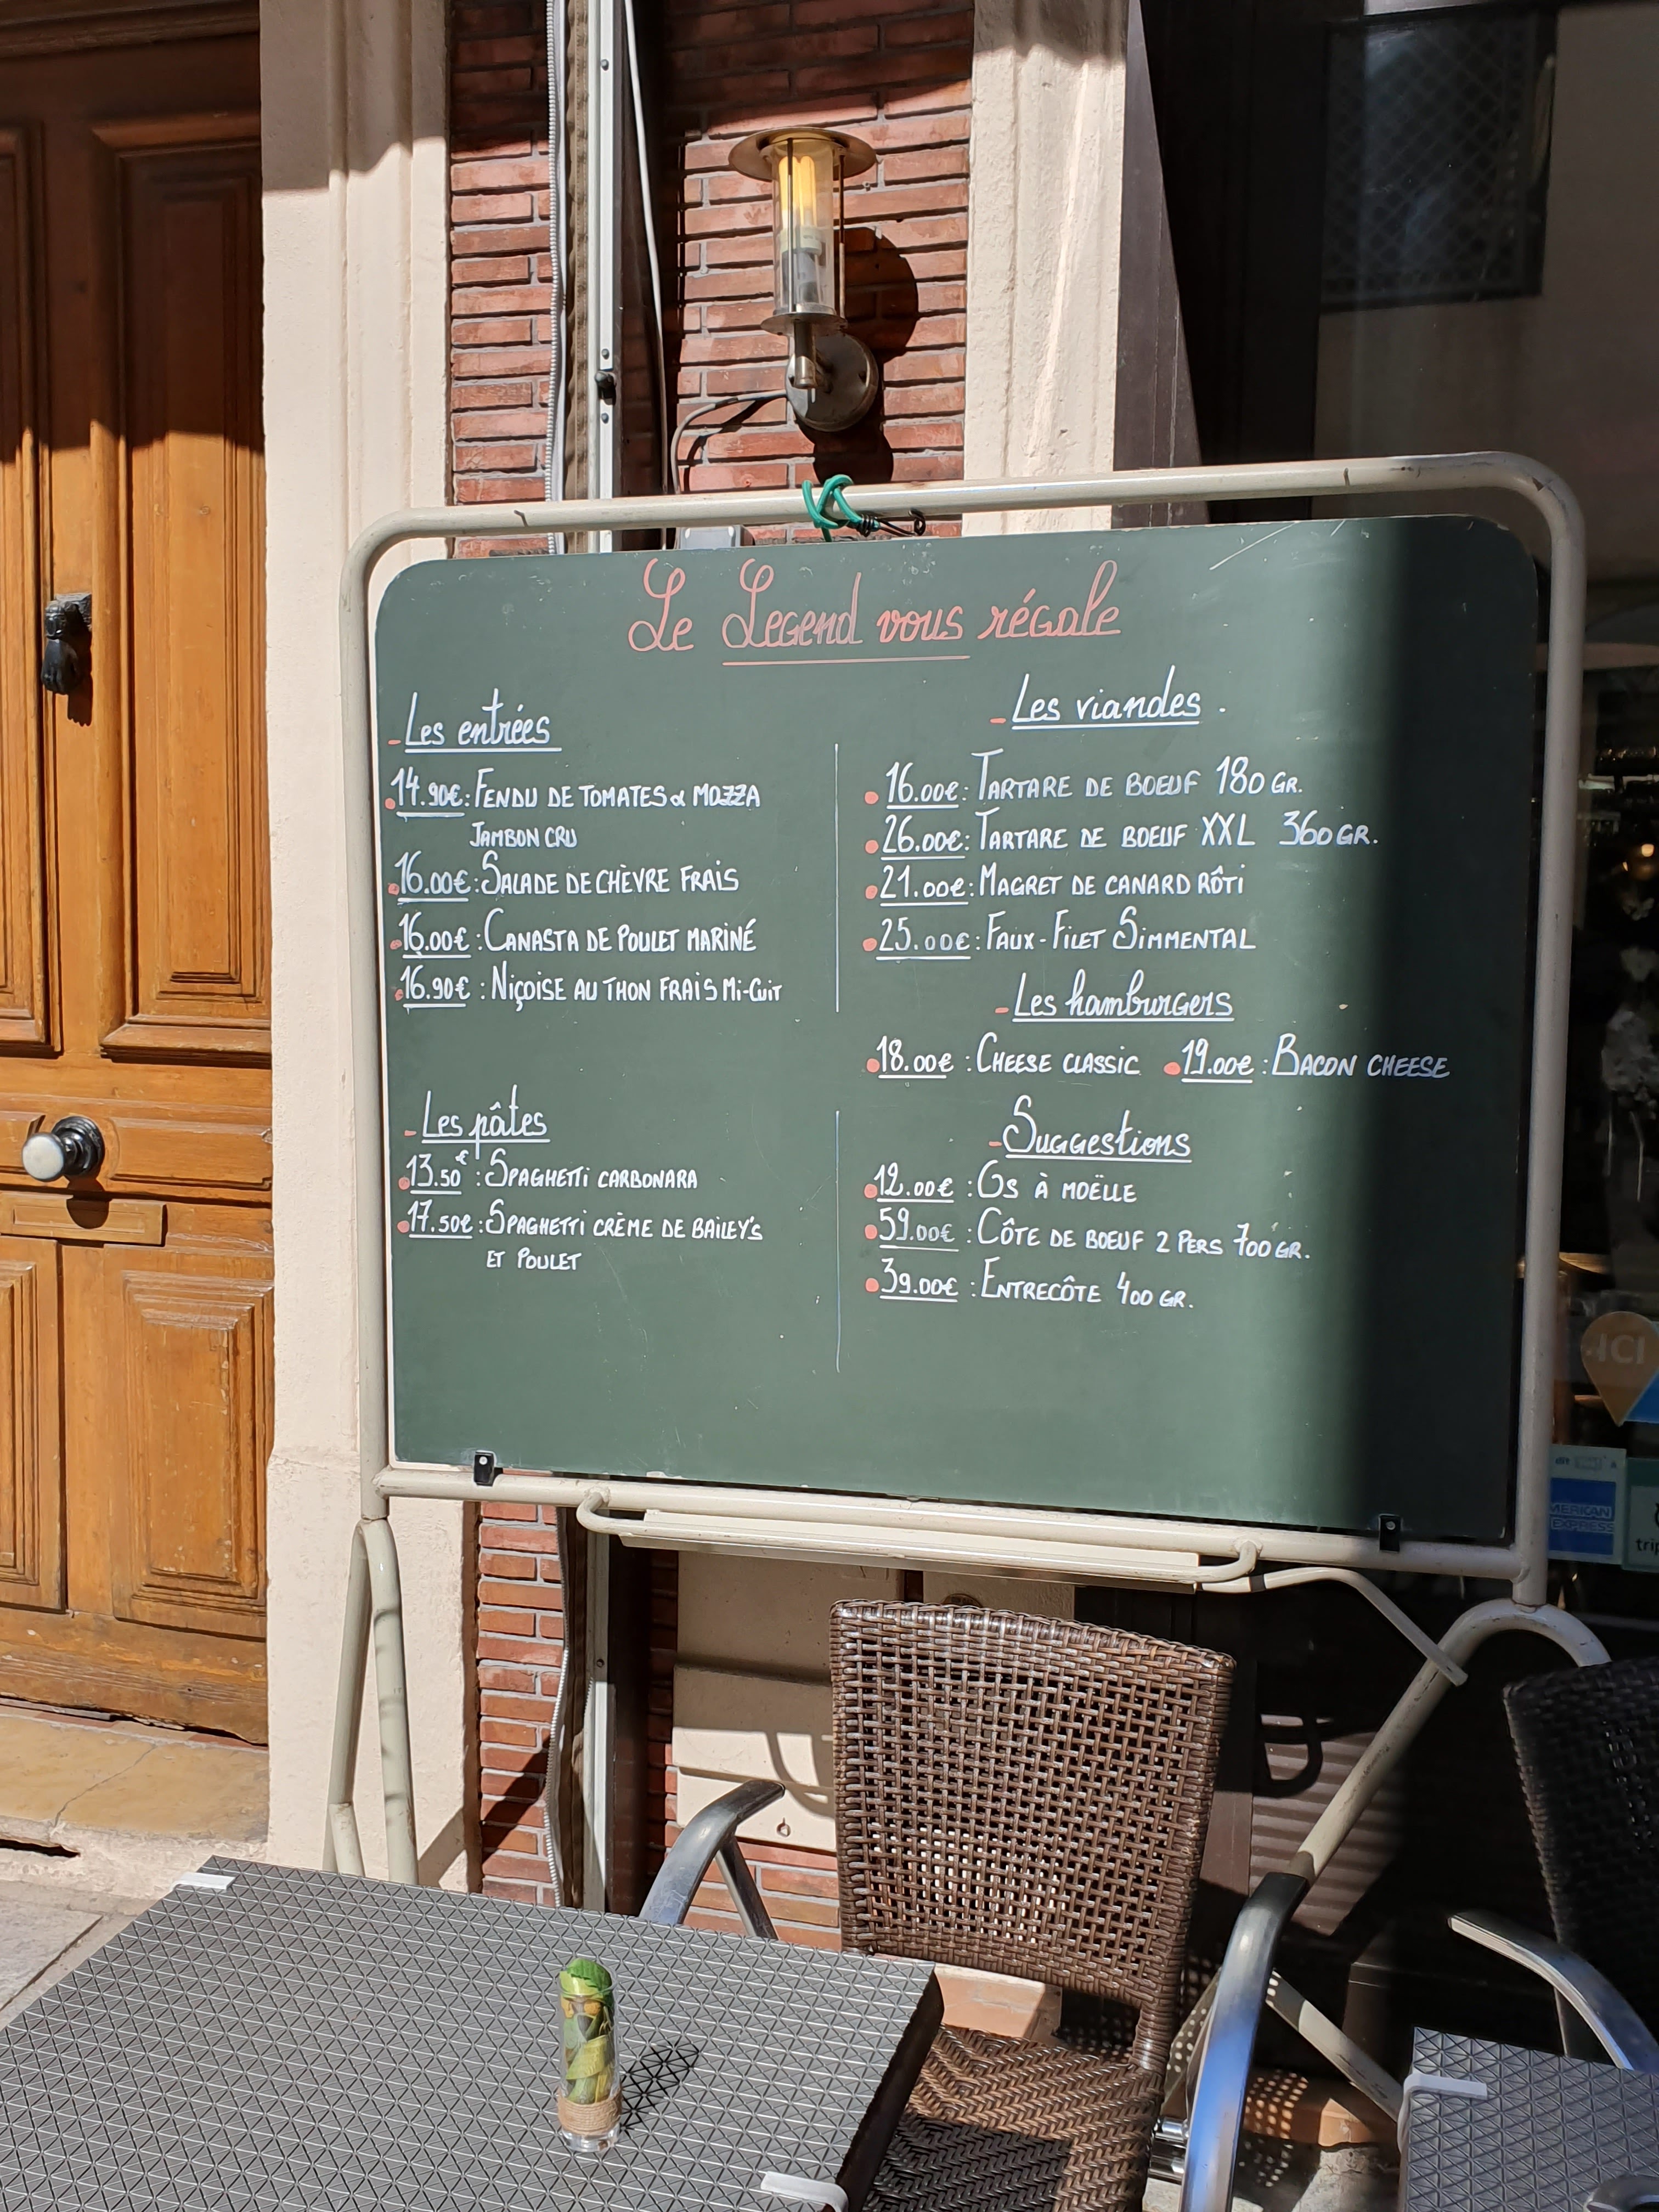 Le Legend vous régale
- Les entrées
14.90€: FENDU DE TOMATES & MOZZA
JAMBON CRU
16.00€: SALADE DE CHÈVRE FRAIS
16.00€: CANASTA DE POULET MARINÉ
16.90€: NIÇOISE AU THON FRAIS MI-CUIT
- Les pâtes
13.50€: SPAGHETTI CARBONARA
17.50€: SPAGHETTI CRÈME DE BAILEY'S
ET POULET
- Les viandes.
16.00€: TARTARE DE BOEUF 180 GR.
26.00€: TARTARE DE BOEUF XXL 360 GR.
21.00€: MAGRET DE CANARD RÔTI
25.00€: FAUX-FILET SIMMENTAL
- Les hamburgers
18.00€: CHEESE CLASSIC 19.00€: BACON CHEESE
- Suggestions
12.00€: OS À MOËLLE
59.00€: CÔTE DE BOEUF 2 PERS 700 GR.
39.00€: ENTRECÔTE 400 GR.
ICI
AMERICAN
EXPRESS